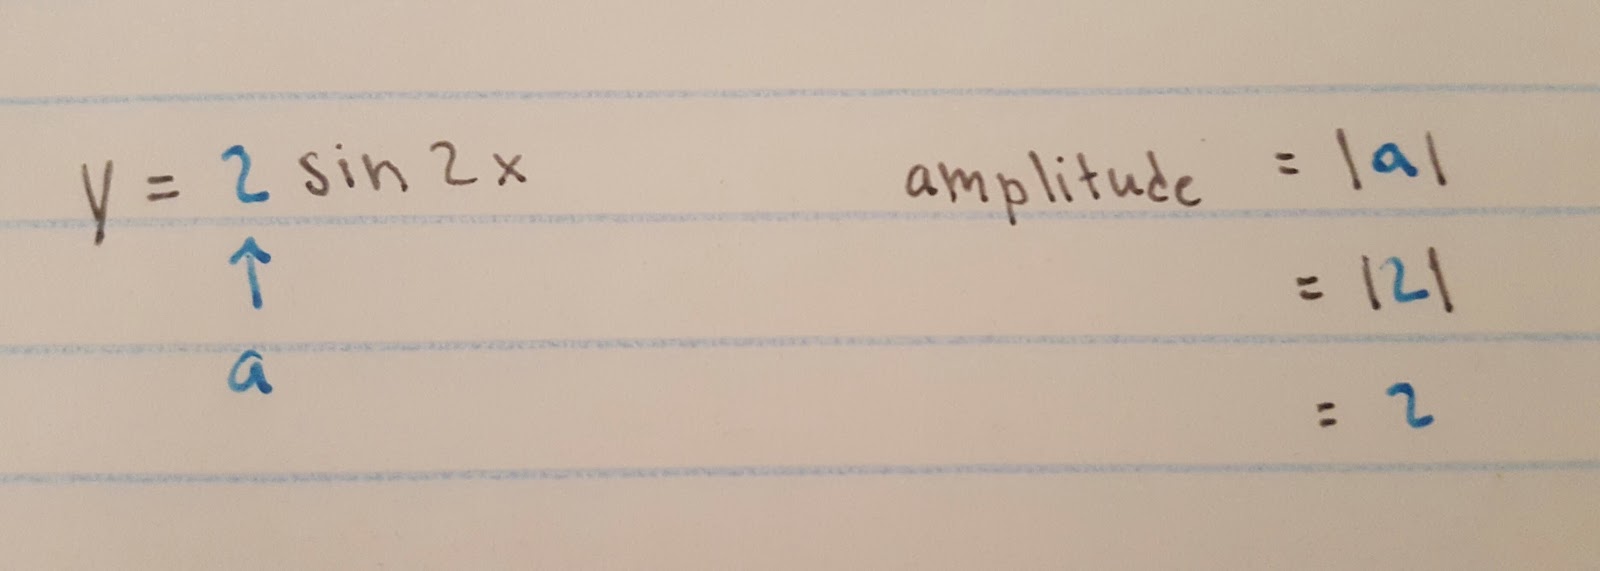 y = 2 sin 2x amplitude = |a|
↑ = |2|
a = 2